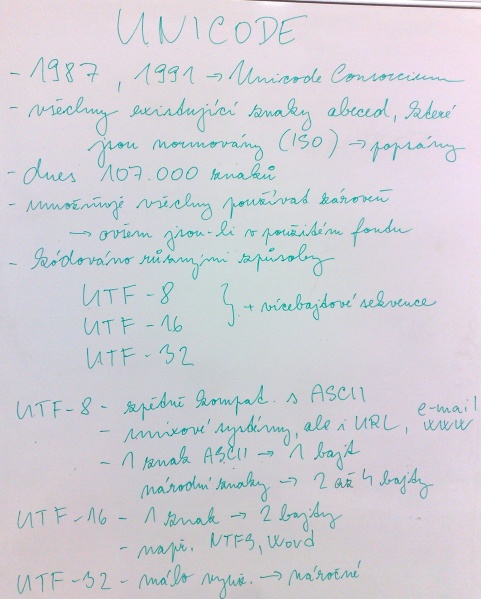 UNICODE
- 1987, 1991 → Unicode Consorcium
- všechny existující znaky abeced, které
jsou normovány (ISO) → popsány
- dnes 107.000 znaků
- umožňuje všechny používat zároveň
→ ovšem jsou-li v použitém fontu
- kódováno různými způsoby
UTF-8
UTF-16
} + vícebajtové sekvence
UTF-32
UTF-8 - zpětně kompat. s ASCII
- unixové systémy, ale i URL, e-mail
www
- 1 znak ASCII → 1 bajt
národní znaky → 2 až 4 bajty
UTF-16 - 1 znak → 2 bajty
- např. NTFS, Word
UTF-32 - málo využ. → náročné